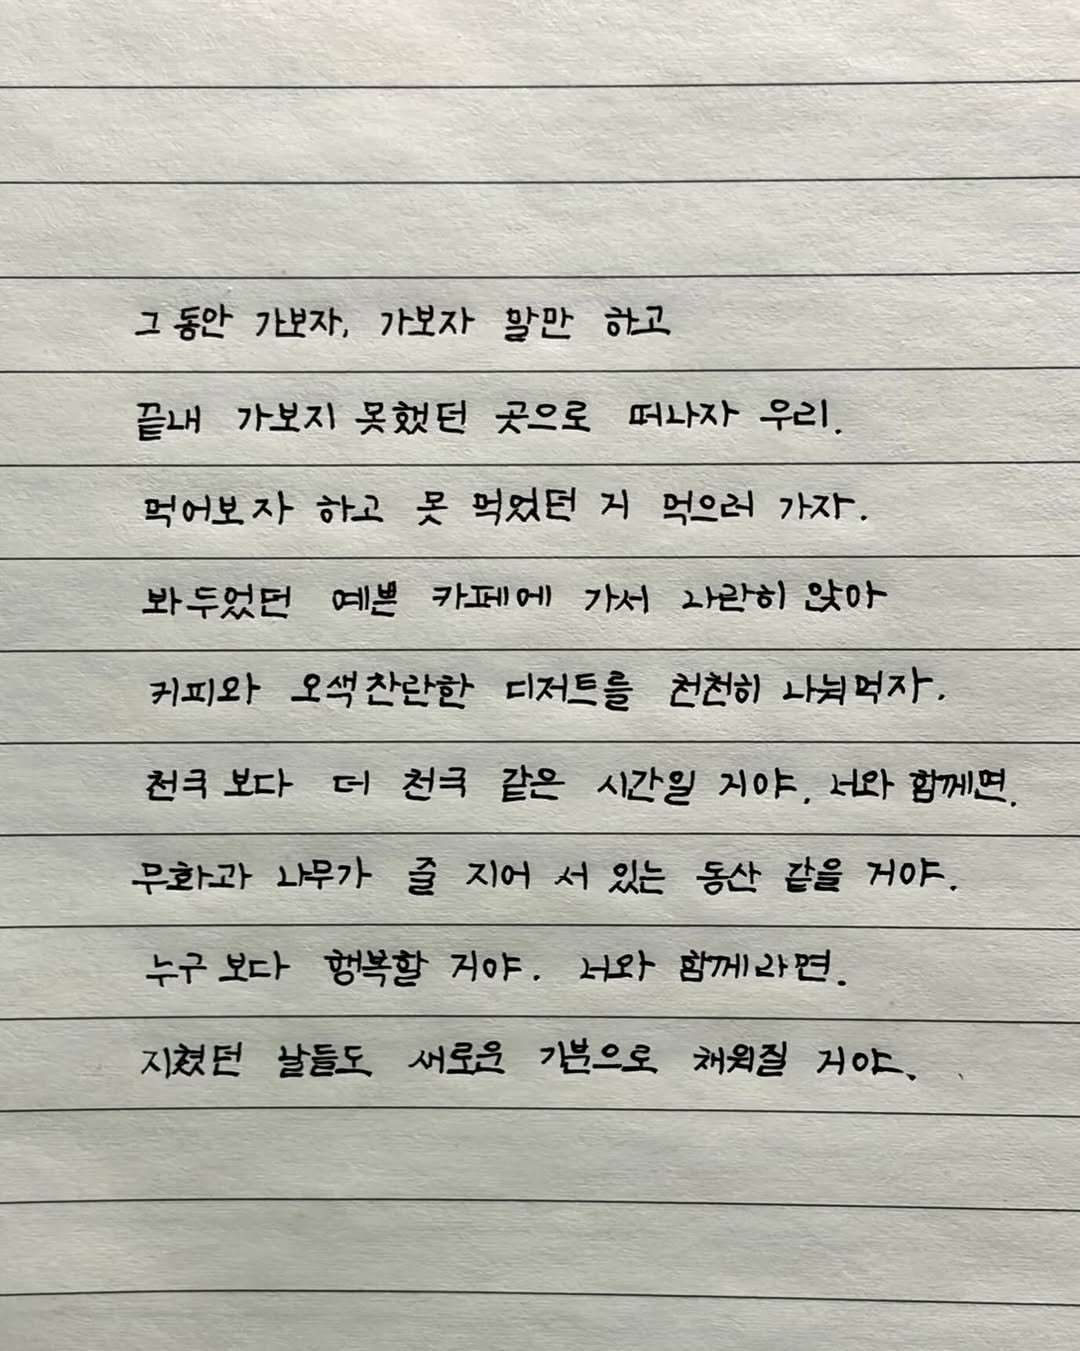 그동안 가보자, 가보자 말만 하고
끝내 가보지 못했던 곳으로 떠나자 우리.
먹어보자 하고 못 먹었던 거 먹으러 가자.
봐두었던 예쁜 카페에 가서 나란히 앉아
커피와 오색찬란한 디저트를 천천히 나눠먹자.
천국보다 더 천국 같은 시간일 거야. 너와 함께면.
무화과 나무가 줄 지어 서 있는 동산 같을 거야.
누구보다 행복할 거야. 너와 함께라면.
지쳤던 날들도 새로운 기분으로 채워질 거야.